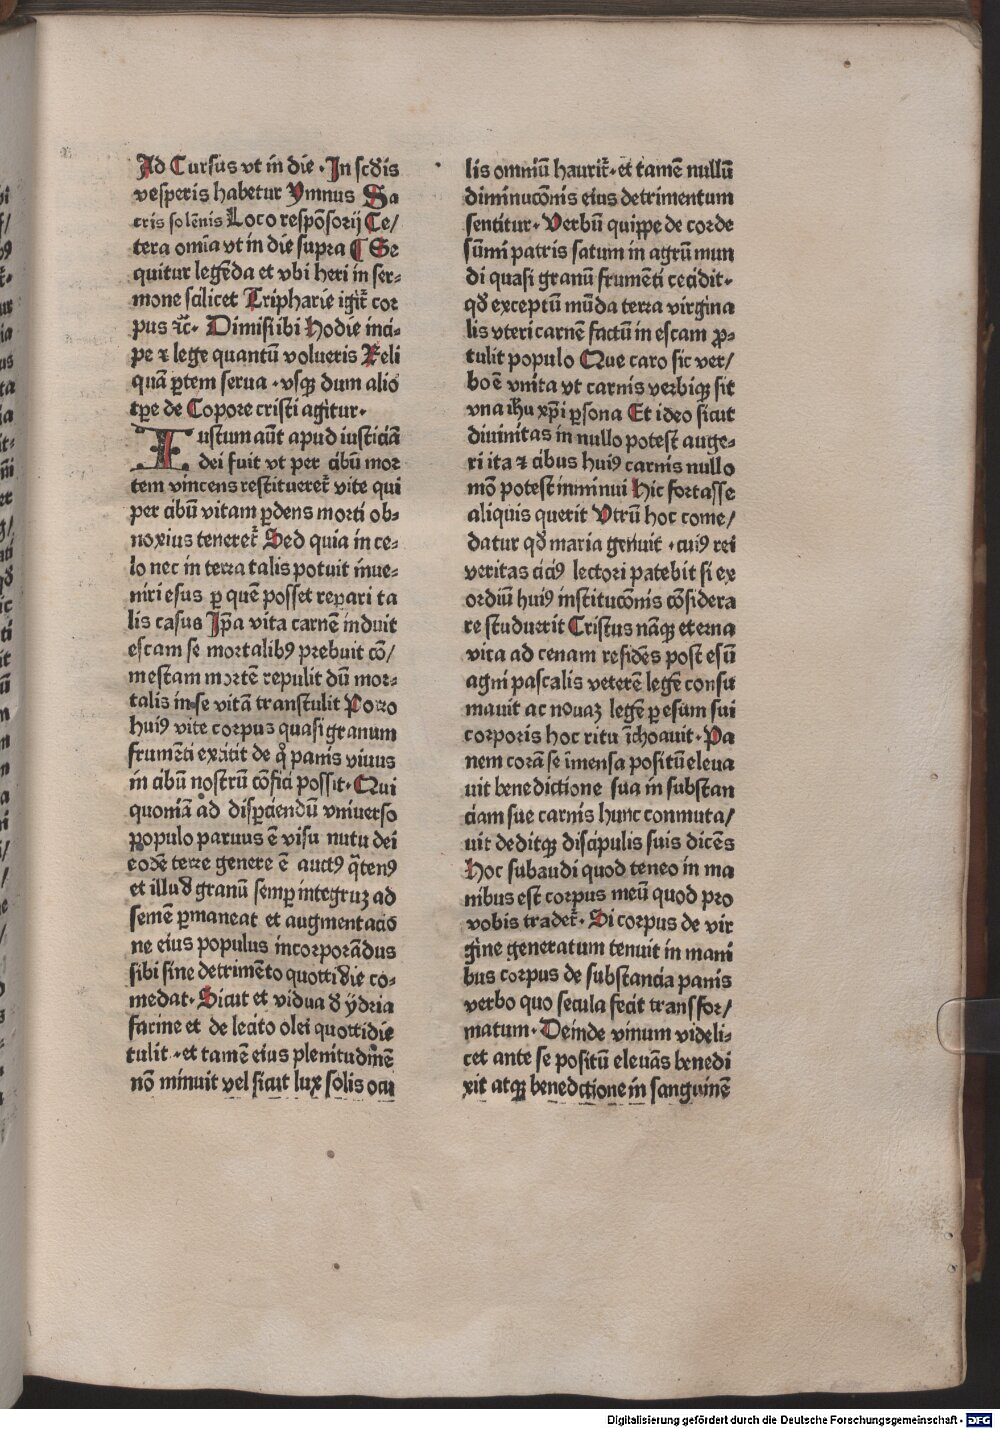 Ad Cursus vt in die · In scdis
vesperis habetur Ymnus Sa
cris solēnis Loco respōsorij Ce/
tera omīa vt in die supra ¶ Se
quitur legēda et vbi heri in ser⸗
mone scilicet Tripharie igit̄ cor
pus ꝛc̄· Dimisi ibi Hodie inci⸗
pe ⁊ lege quantū volueris Reli
quā ꝑtem serua · vsqꝫ dum alio
tꝑe de Copore cristi agitur·
Iustum aūt apud iusticiā
dei fuit vt per cibū mor
tem vincens restitueret̄ vite qui
per cibū vitam ꝑdens morti ob⸗
noxius teneret̄ Sed quia in ce⸗
lo nec in terra talis potuit inue⸗
niri esus ꝑ quē posset reꝑari ta
lis casus Ip̄a vita carnē induit
escam se mortalibꝰ prebuit cō/
mestam mortē repulit dū mor⸗
talis in se vitā transtulit Porro
huiꝰ vite corpus quasi granum
frumēti extitit de qͦ panis viuus
in cibū nostrū cōfici possit· Qui
quoniā ad disꝑciendū vniuerso
ꝓpopulo paruus ē visu nutu dei
eodē terre genere ē auctꝰ q̄tenꝰ
et illud granū semꝑ integruꝫ ad
semē ꝑmaneat et augmentacio
ne eius populus incorporādus
sibi sine detrimēto quottidie co⸗
medat· Sicut et vidua d ydria
farine et de lecito olei quottidie
tulit · et tamē eius plenitudinē
nō minuit vel sicut lux solis ocu
lis omniū haurit̄· et tamē nullū
diminucōnis eius detrimentum
sentitur· Verbū quippe de corde
sūmi patris satum in agrū mun
di quasi granū frumēti cecidit·
qd̄ exceptū mūda terra virgina
lis vteri carnē factū in escam ꝓ⸗
tulit populo Que caro sic ver/
bo ē vnita vt carnis verbiqꝫ sit
vna ihu xp̄i ꝑsona Et ideo sicut
diuinitas in nullo potest auge⸗
ri ita ⁊ cibus huiꝰ carnis nullo
mō potest imminui Hic fortasse
aliquis querit Vtrū hoc come/
datur qd̄ maria genuit · cuiꝰ rei
veritas ciciꝰ lectori patebit si ex
ordiū huiꝰ institucōnis cōsidera
re studuerit Cristus nāqꝫ eterna
vita ad cenam residēs post esū
agni pascalis veterē legē consu
mauit ac nouaꝫ legē ꝑ esum sui
corporis hoc ritu īchoauit· Pa
nem corā se īmensa positū eleua
uit benedictione sua in substan
ciam sue carnis hunc conmuta/
uit deditqꝫ discipulis suis dicēs
Hoc subaudi quod teneo in ma
nibus est corpus meū quod pro
vobis tradet̄· Si corpus de vir
gine generatum tenuit in mani
bus corpus de substancia panis
verbo quo secula fecit transfor/
matum· Deinde vinum videli⸗
cet ante se positū eleuās benedi
xit atqꝫ benedctione in sanguinē
Digitalisierung gefördert durch die Deutsche Forschungsgemeinschaft - DFG